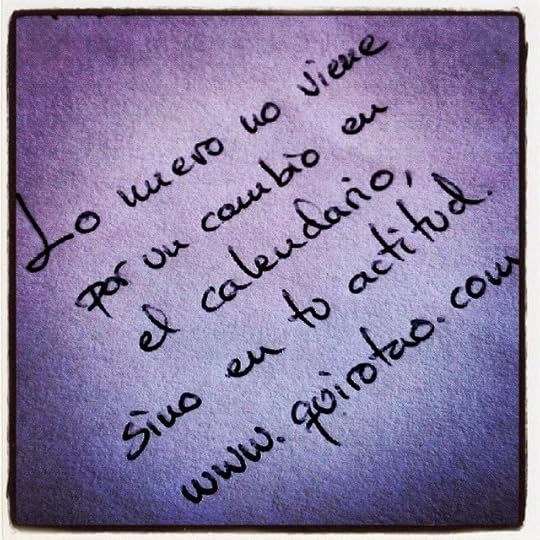 Lo nuevo no viene
por un cambio en
el calendario,
sino en tu actitud.
www.quirotao.com